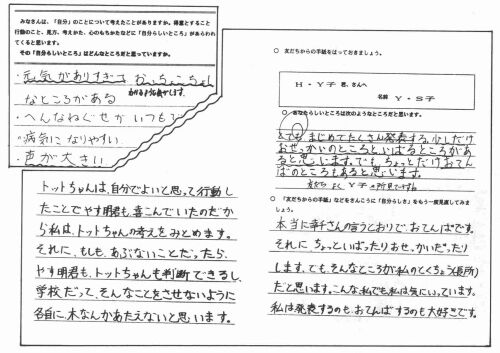 みなさんは、「自分」のことについて考えたことがありますか。得意とすること
行動のこと、見方、考えかた、心のもちかたなどに「自分らしいところ」があらわれ
てくると思います。
その「自分らしいところ」はどんなところだと思っていますか。
・元気がありすぎて おっちょこちょい
なところがある
・へんなねぐせが いつも
・病気になりやすい
・声が大きい
トットちゃんは、自分でよいと思って行動し
たことでやす明君も、喜こんでいたのだか
ら私は、トットちゃんの考えをみとめます。
それに、もしも、あぶないことだったら、
やす明君も、トットちゃんも判断できるし、
学校だって、そんなことをさせないように
各自に、木なんかあたえないと思います。
○ 友だちからの手紙をはっておきましょう。
H・Y子 君、さんへ
名前 Y・S子
○ あなたらしいところは次のようなところだと思います。
とてもまじめでたくさん発表する。少しだけ
おせっかいのところと、いばるところがあ
ると思います。でも、ちょっとだけおてん
ばのところもあると思います。
○ 「友だちからの手紙」などをさんこうに「自分らしさ」をもう一度見直してみま
しょう。
本当に幸子さんの言うとおりで、おてんばです。
それに ちょっといばったりおせっかいだったり
します。でも、そんなところが私のとくちょう(長所)
だと思います。こんな私でも私は気にいっています。
私は発表するのも、おてんばするのも大好きです。